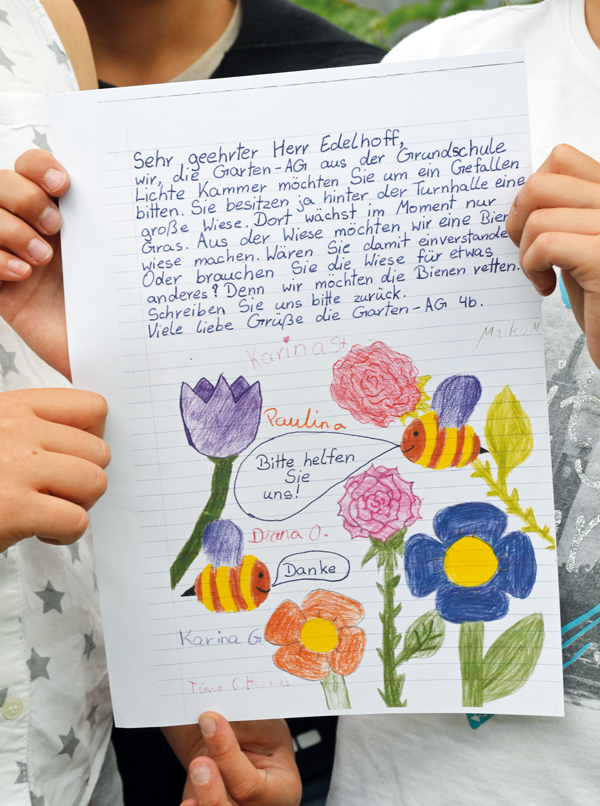 Sehr geehrter Herr Edelhoff,
wir, die Garten-AG aus der Grundschule
Lichte Kammer möchten Sie um ein Gefallen
bitten. Sie besitzen ja hinter der Turnhalle eine
große Wiese. Dort wächst im Moment nur
Gras. Aus der Wiese möchten wir eine Bien
wiese machen. Wären Sie damit einverstande
Oder brauchen Sie die Wiese für etwas
anderes? Denn wir möchten die Bienen retten.
Schreiben Sie uns bitte zurück.
Viele liebe Grüße die Garten-AG 4b.
Karina St
Paulina
Bitte helfen
Sie
uns!
Diana O.
Danke
Karina G.